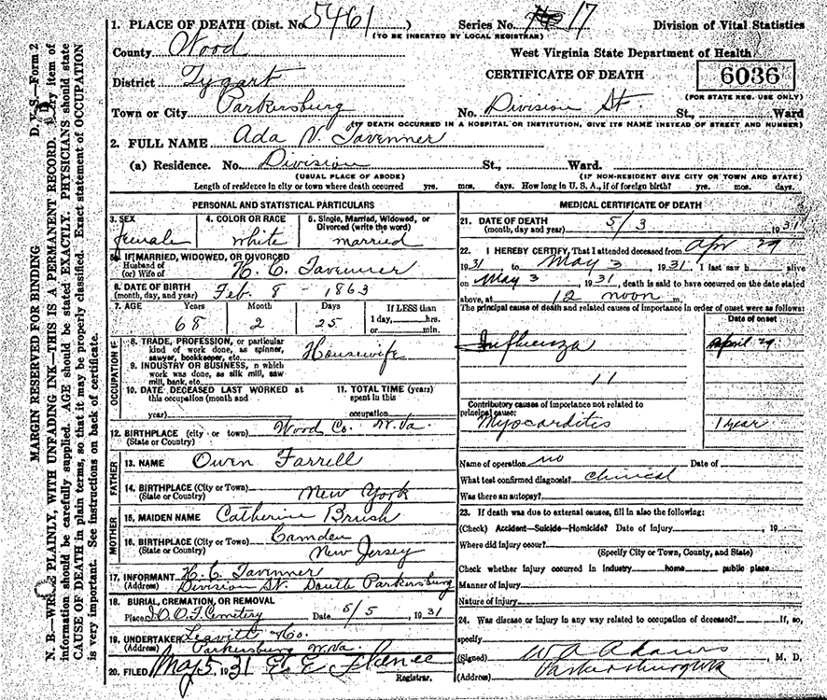 MARGIN RESERVED FOR BINDING D. V. S.—Form 2
N. B.—WRITE PLAINLY, WITH UNFADING INK—THIS IS A PERMANENT RECORD. Every item of
information should be carefully supplied. AGE should be stated EXACTLY. PHYSICIANS should state
CAUSE OF DEATH in plain terms, so that it may be properly classified. Exact statement of OCCUPATION
is very important. See instructions on back of certificate.
1. PLACE OF DEATH (Dist. No. 5461) Series No. 17 Division of Vital Statistics
(TO BE INSERTED BY LOCAL REGISTRAR)
County Wood West Virginia State Department of Health
District Tygart CERTIFICATE OF DEATH 6036
(FOR STATE REG. USE ONLY)
Town or City Parkersburg No. Division St. St., Ward
(IF DEATH OCCURRED IN A HOSPITAL OR INSTITUTION, GIVE ITS NAME INSTEAD OF STREET AND NUMBER)
2. FULL NAME Ada V. Tavenner
(a) Residence. No. Division St., Ward.
(USUAL PLACE OF ABODE) (IF NON-RESIDENT GIVE CITY OR TOWN AND STATE)
Length of residence in city or town where death occurred yrs. mos. days. How long in U. S. A., if of foreign birth? yrs. mos. days.
PERSONAL AND STATISTICAL PARTICULARS
3. SEX 4. COLOR OR RACE 5. Single, Married, Widowed, or
Divorced (write the word)
female white married
5a IF MARRIED, WIDOWED, OR DIVORCED
Husband of
(or) Wife of H. C. Tavenner
6. DATE OF BIRTH
(month, day, and year) Feb. 8 - 1863
7. AGE Years Month Days If LESS than
68 2 25 1 day, hrs.
or min.
OCCUPATION
8. TRADE, PROFESSION, or particular
kind of work done, as spinner,
sawyer, bookkeeper, etc. Housewife
9. INDUSTRY OR BUSINESS, n which
work was done, as silk mill, saw
mill, bank, etc.
10. DATE DECEASED LAST WORKED at
this occupation (month and
year)
11. TOTAL TIME (years)
spent in this
occupation
12. BIRTHPLACE (city or town) Wood Co. W. Va.
(State or Country)
FATHER
13. NAME Owen Farrell
14. BIRTHPLACE (City or Town)
(State or Country) New York
MOTHER
15. MAIDEN NAME Catherine Brush
16. BIRTHPLACE (City or Town) Camden
(State or Country) New Jersey
17. INFORMANT H. C. Tavenner
(Address) Division St. South Parkersburg
18. BURIAL, CREMATION, OR REMOVAL
Place I.O.O.F. Cemetery Date 5/5 1931
19. UNDERTAKER Leavitt Co.
(Address) Parkersburg W. Va.
20. FILED May 5, 1931
Registrar.
MEDICAL CERTIFICATE OF DEATH
21. DATE OF DEATH
(month, day and year) 5/3 1931
22. I HEREBY CERTIFY, That I attended deceased from Apr 29
1931 to May 3, 1931, I last saw h alive
on May 3, 1931, death is said to have occurred on the date stated
above, at 12 noon m.
The principal cause of death and related causes of importance in order of onset were as follows:
Date of onset
Influenza April 29
11
Contributory causes of importance not related to
principal cause:
Myocarditis 1 year
Name of operation no Date of
What test confirmed diagnosis? Clinical
Was there an autopsy?
23. If death was due to external causes, fill in also the following:
(Check) Accident—Suicide—Homicide? Date of injury, 19
Where did injury occur?
(Specify City or Town, County, and State)
Check whether injury occurred in Industry home public place
Manner of injury
Nature of injury
24. Was disease or injury in any way related to occupation of deceased? If, so,
specify
(Signed) W A Adams, M. D.
(Address) Parkersburg WVa